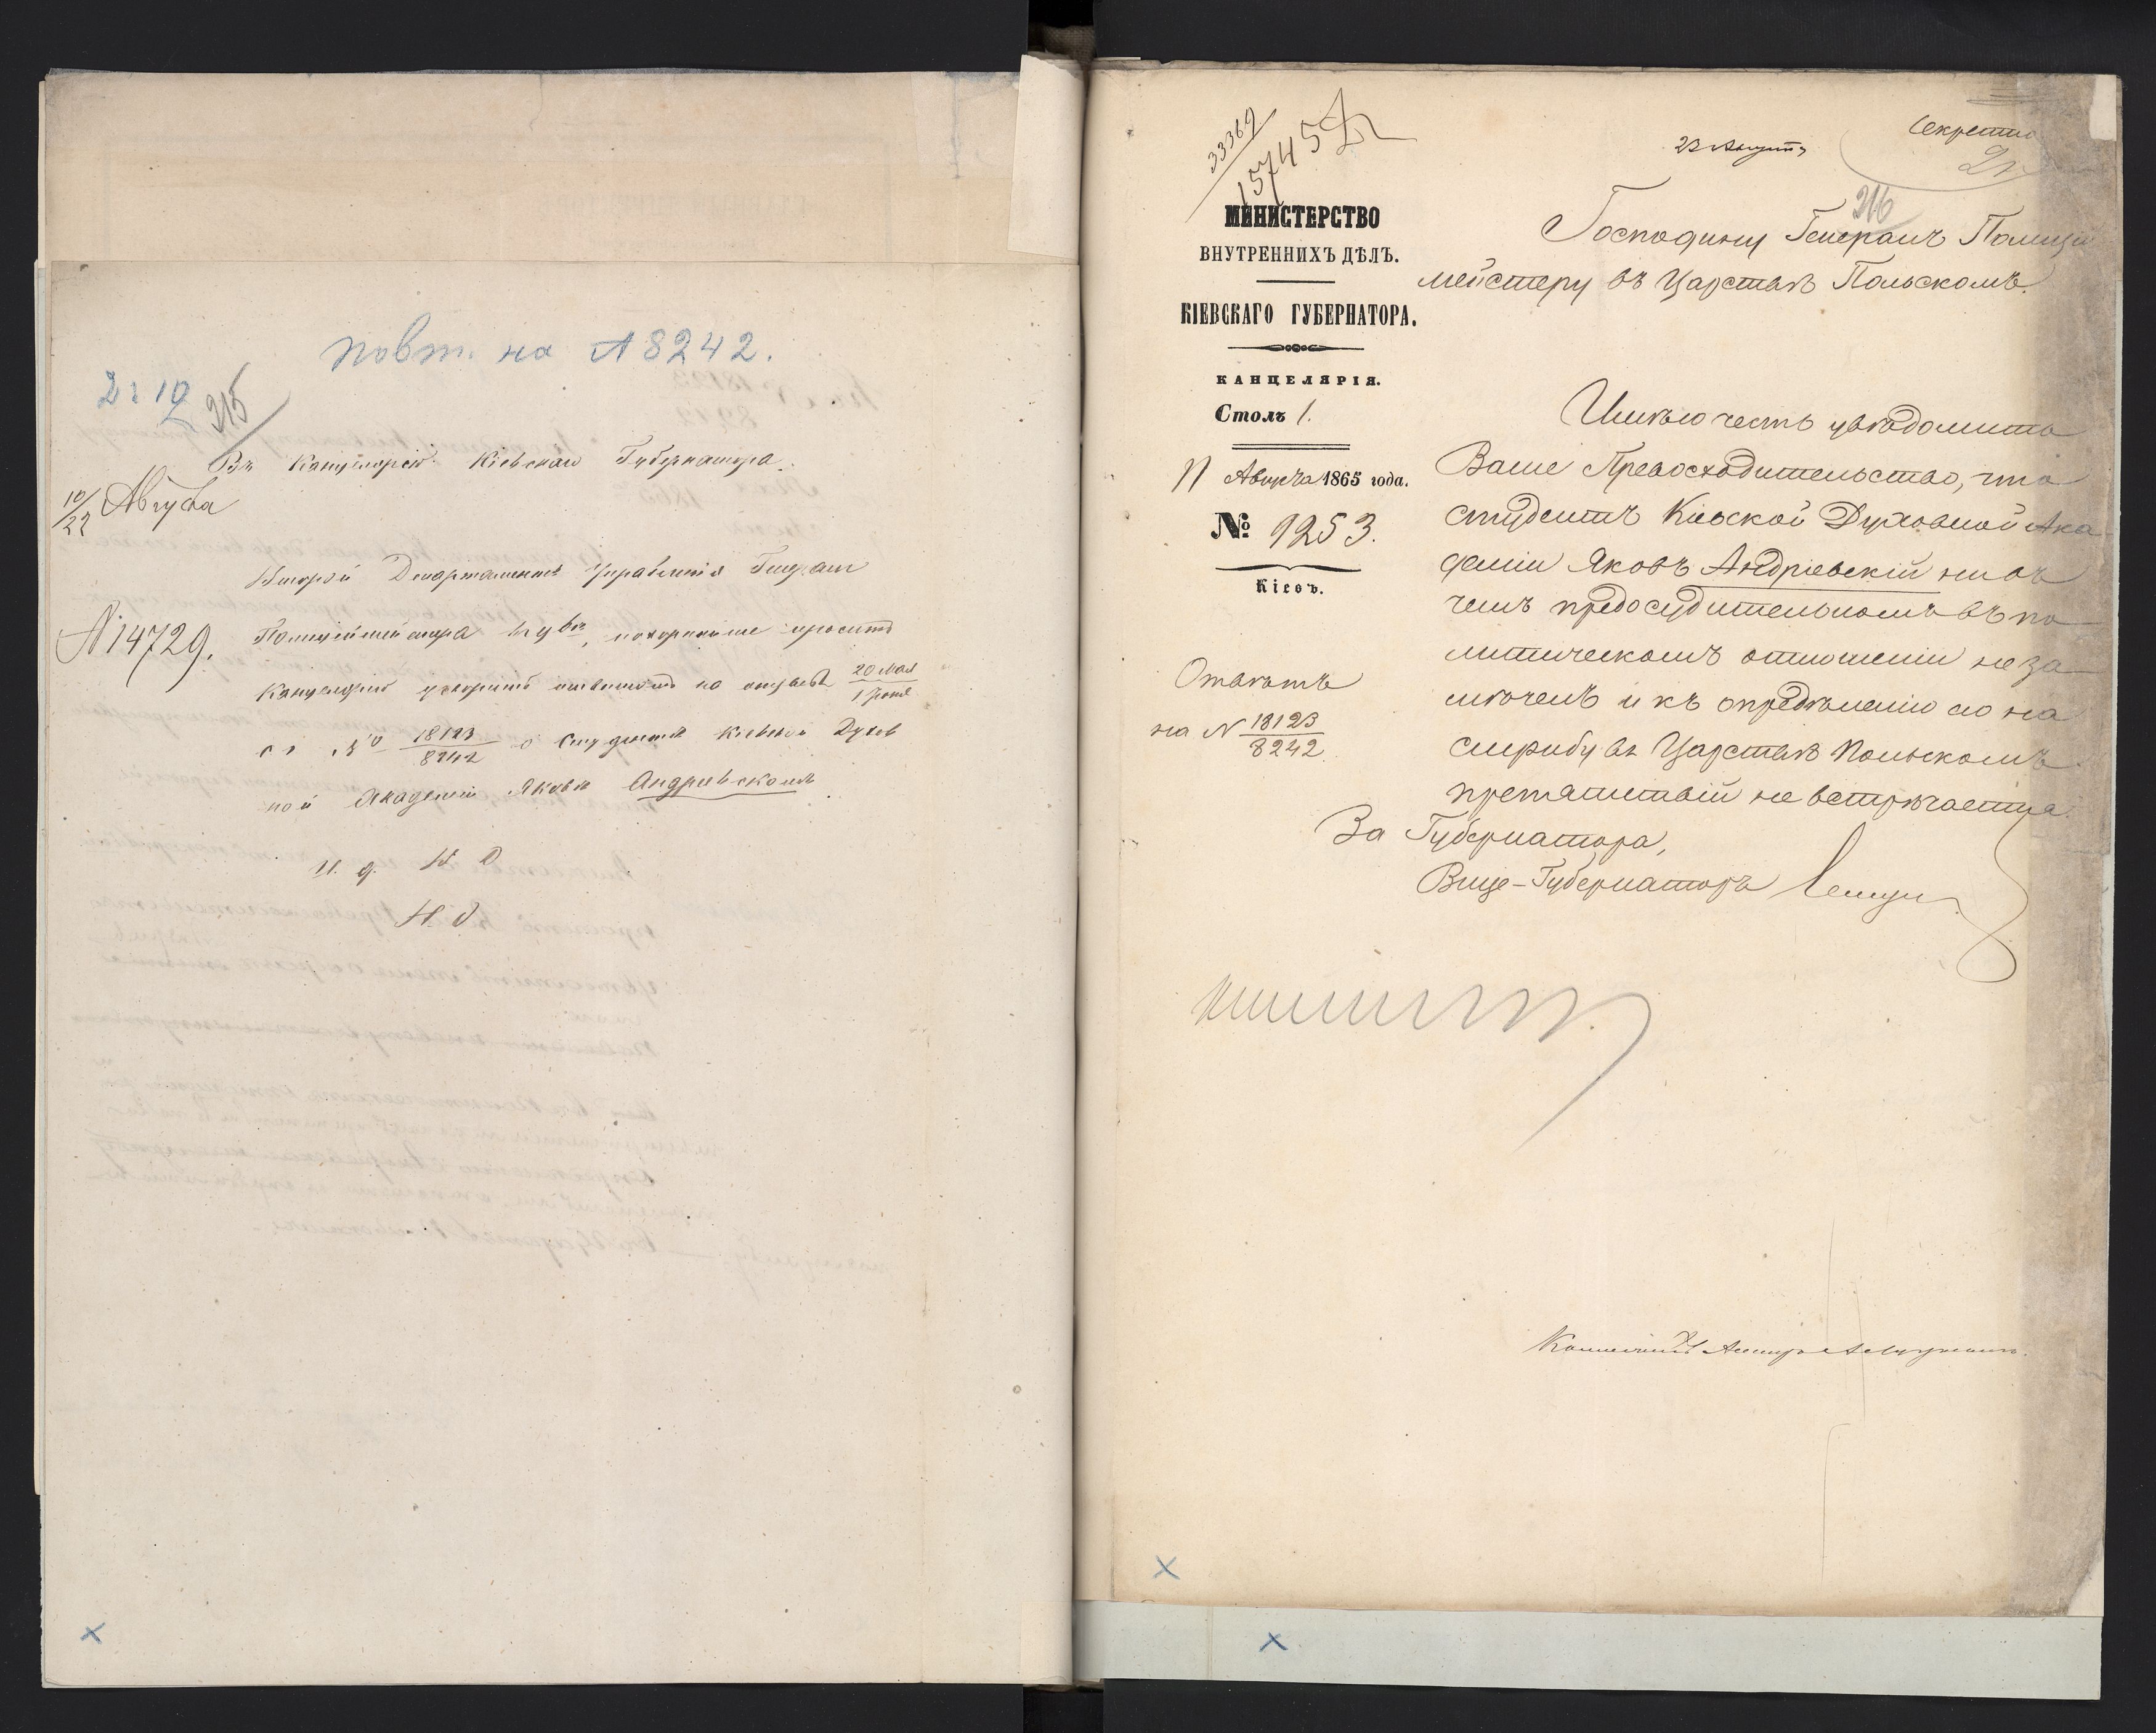 повт. на № 8242.
215
Въ Канцелярію Кіевскаго Губернатора.
10/22 Августа
Второй Департаментъ Управленія Генералъ
№ 14729.
Полицiймейстера покорнѣйше проситъ
Канцелярію ускорить отвѣтомъ на отзывъ 20 Мая / 1 Іюня
за № 18123/8242 о Студентѣ Кіевской Духов
ной Академіи Яковѣ Андріевскомъ.
И. д. Н. О
Н. О
33369
15745
23 Августа
Секретно
216
МИНИСТЕРСТВО
ВНУТРЕННИХЪ ДѢЛЪ.
КІЕВСКАГО ГУБЕРНАТОРА.
КАНЦЕЛЯРІЯ.
Столъ 1.
11 Августа 1865 года.
№ 9253.
Кіевъ.
Отвѣтъ
на № 18123/8242.
Господину Генералъ Полиціи
мейстеру въ Царствѣ Польскомъ.
Имѣю честь увѣдомить
Ваше Превосходительство, что
студентъ Кіевской Духовной Ака
деміи Яковъ Андріевскій ни въ
чемъ предосудительномъ въ по
литическомъ отношеніи не за
мѣченъ и къ опредѣленію его на
службу въ Царствѣ Польскомъ
препятствій не встрѣчается.
За Губернатора,
Вице-Губернаторъ